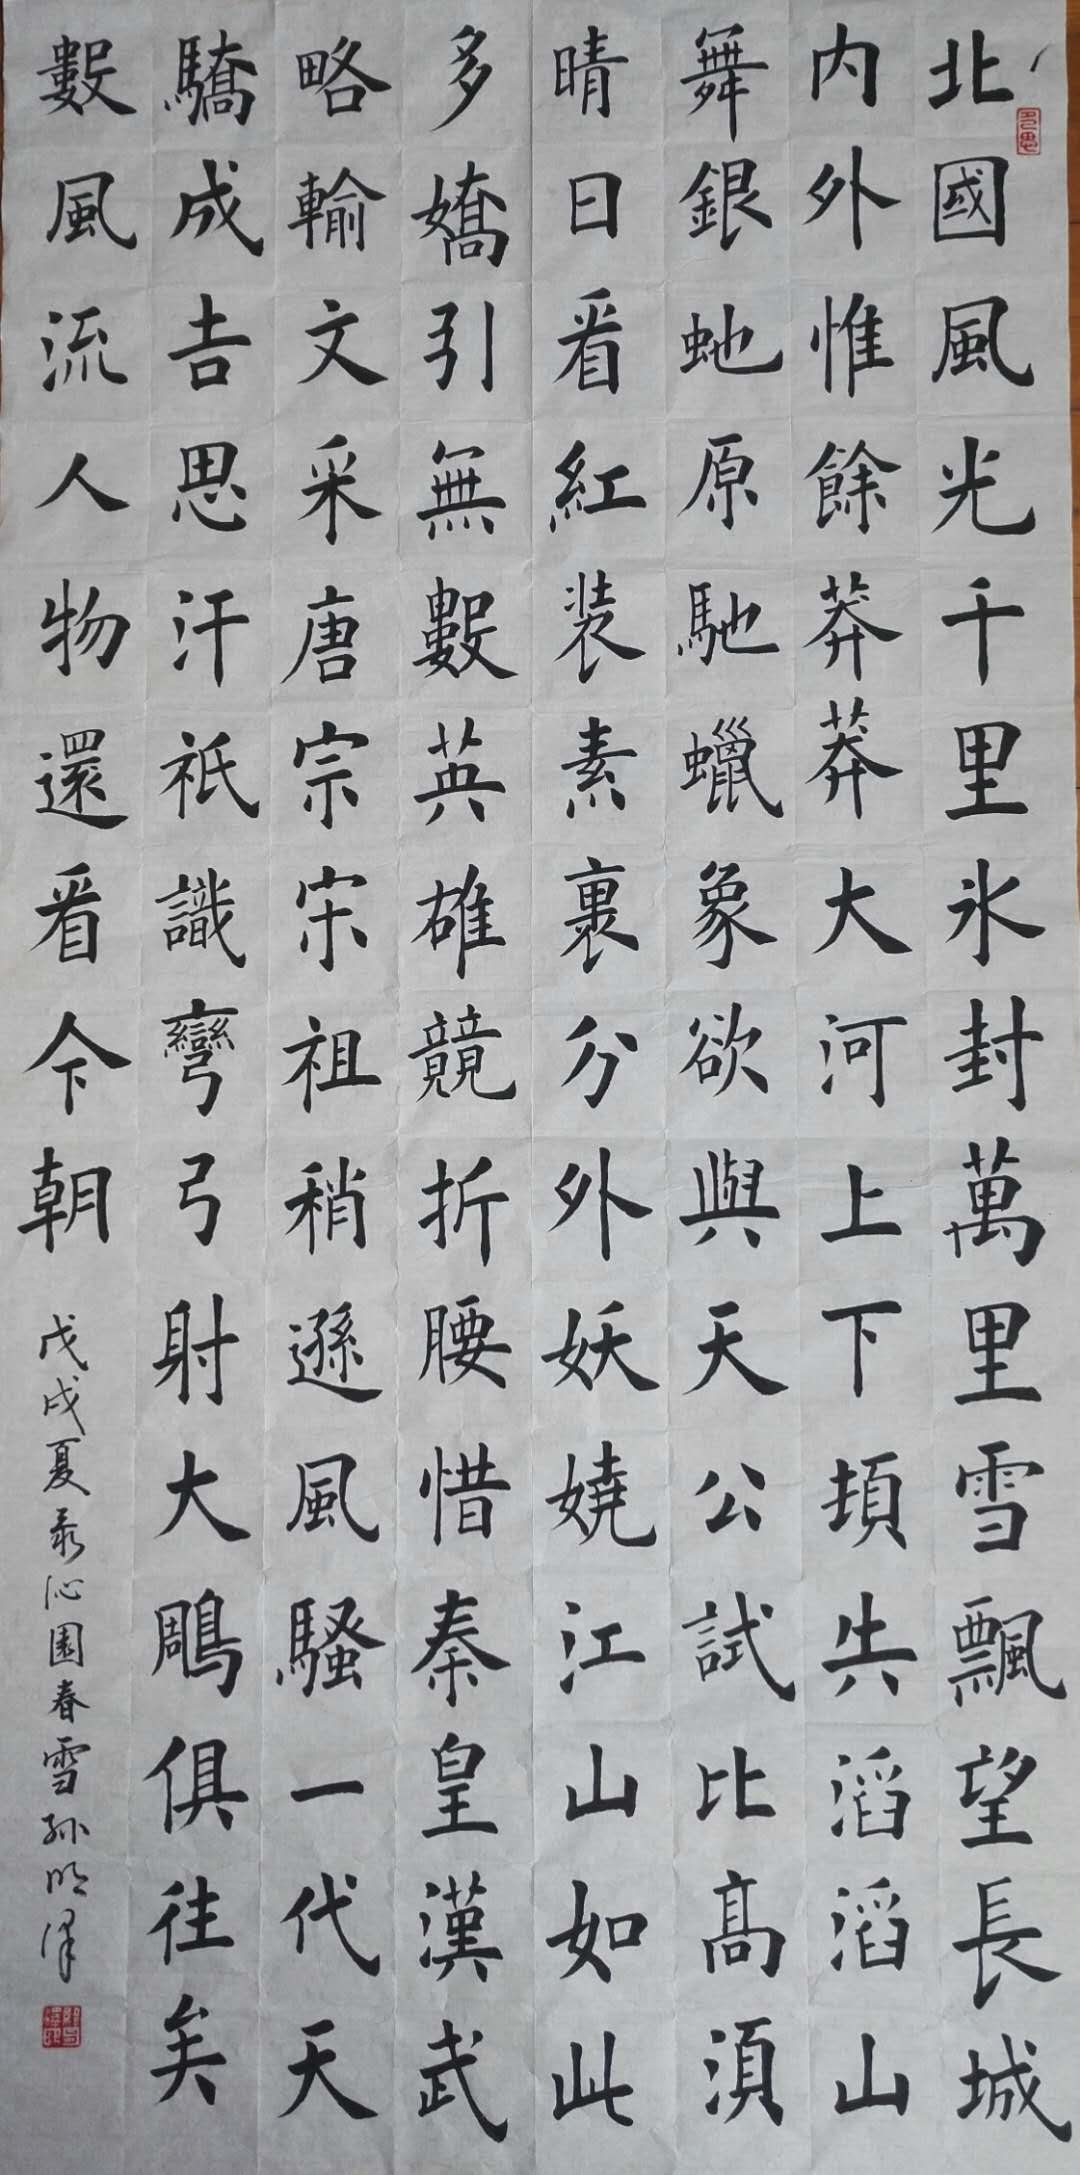 北國風光千里氷封萬里雪飄望長城
内外惟餘莽莽大河上下頓失滔滔山
舞銀虵原馳蠟象欲與天公試比髙須
晴日看紅装素裹分外妖嬈江山如此
多嬌引無數英雄競折腰惜秦皇漢武
略輸文采唐宗宋祖稍遜風騷一代天
驕成吉思汗祇識彎弓射大鵰俱往矣
數風流人物還看今朝
戊戌夏录沁園春雪孙明泽